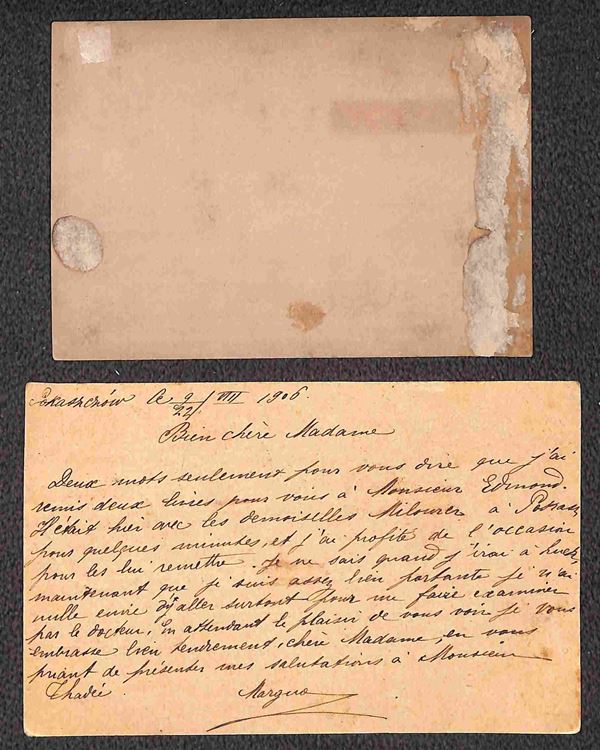 le 9/22 VIII 1906.
Bien chère Madame
Deux mots seulement pour vous dire que j'ai
remis deux livres pour vous à Monsieur Edmond.
Il était hier avec les demoiselles à
pour quelques minutes, et j'ai profité de l'occasion
pour les lui remettre. Je ne sais quand j'irai à
maintenant que je suis assez bien portante je n'ai
nulle envie d'y aller surtout pour me faire examiner
par le docteur. En attendant le plaisir de vous voir je vous
embrasse bien tendrement, chère Madame, en vous
priant de présenter mes salutations à Monsieur
Thadée.